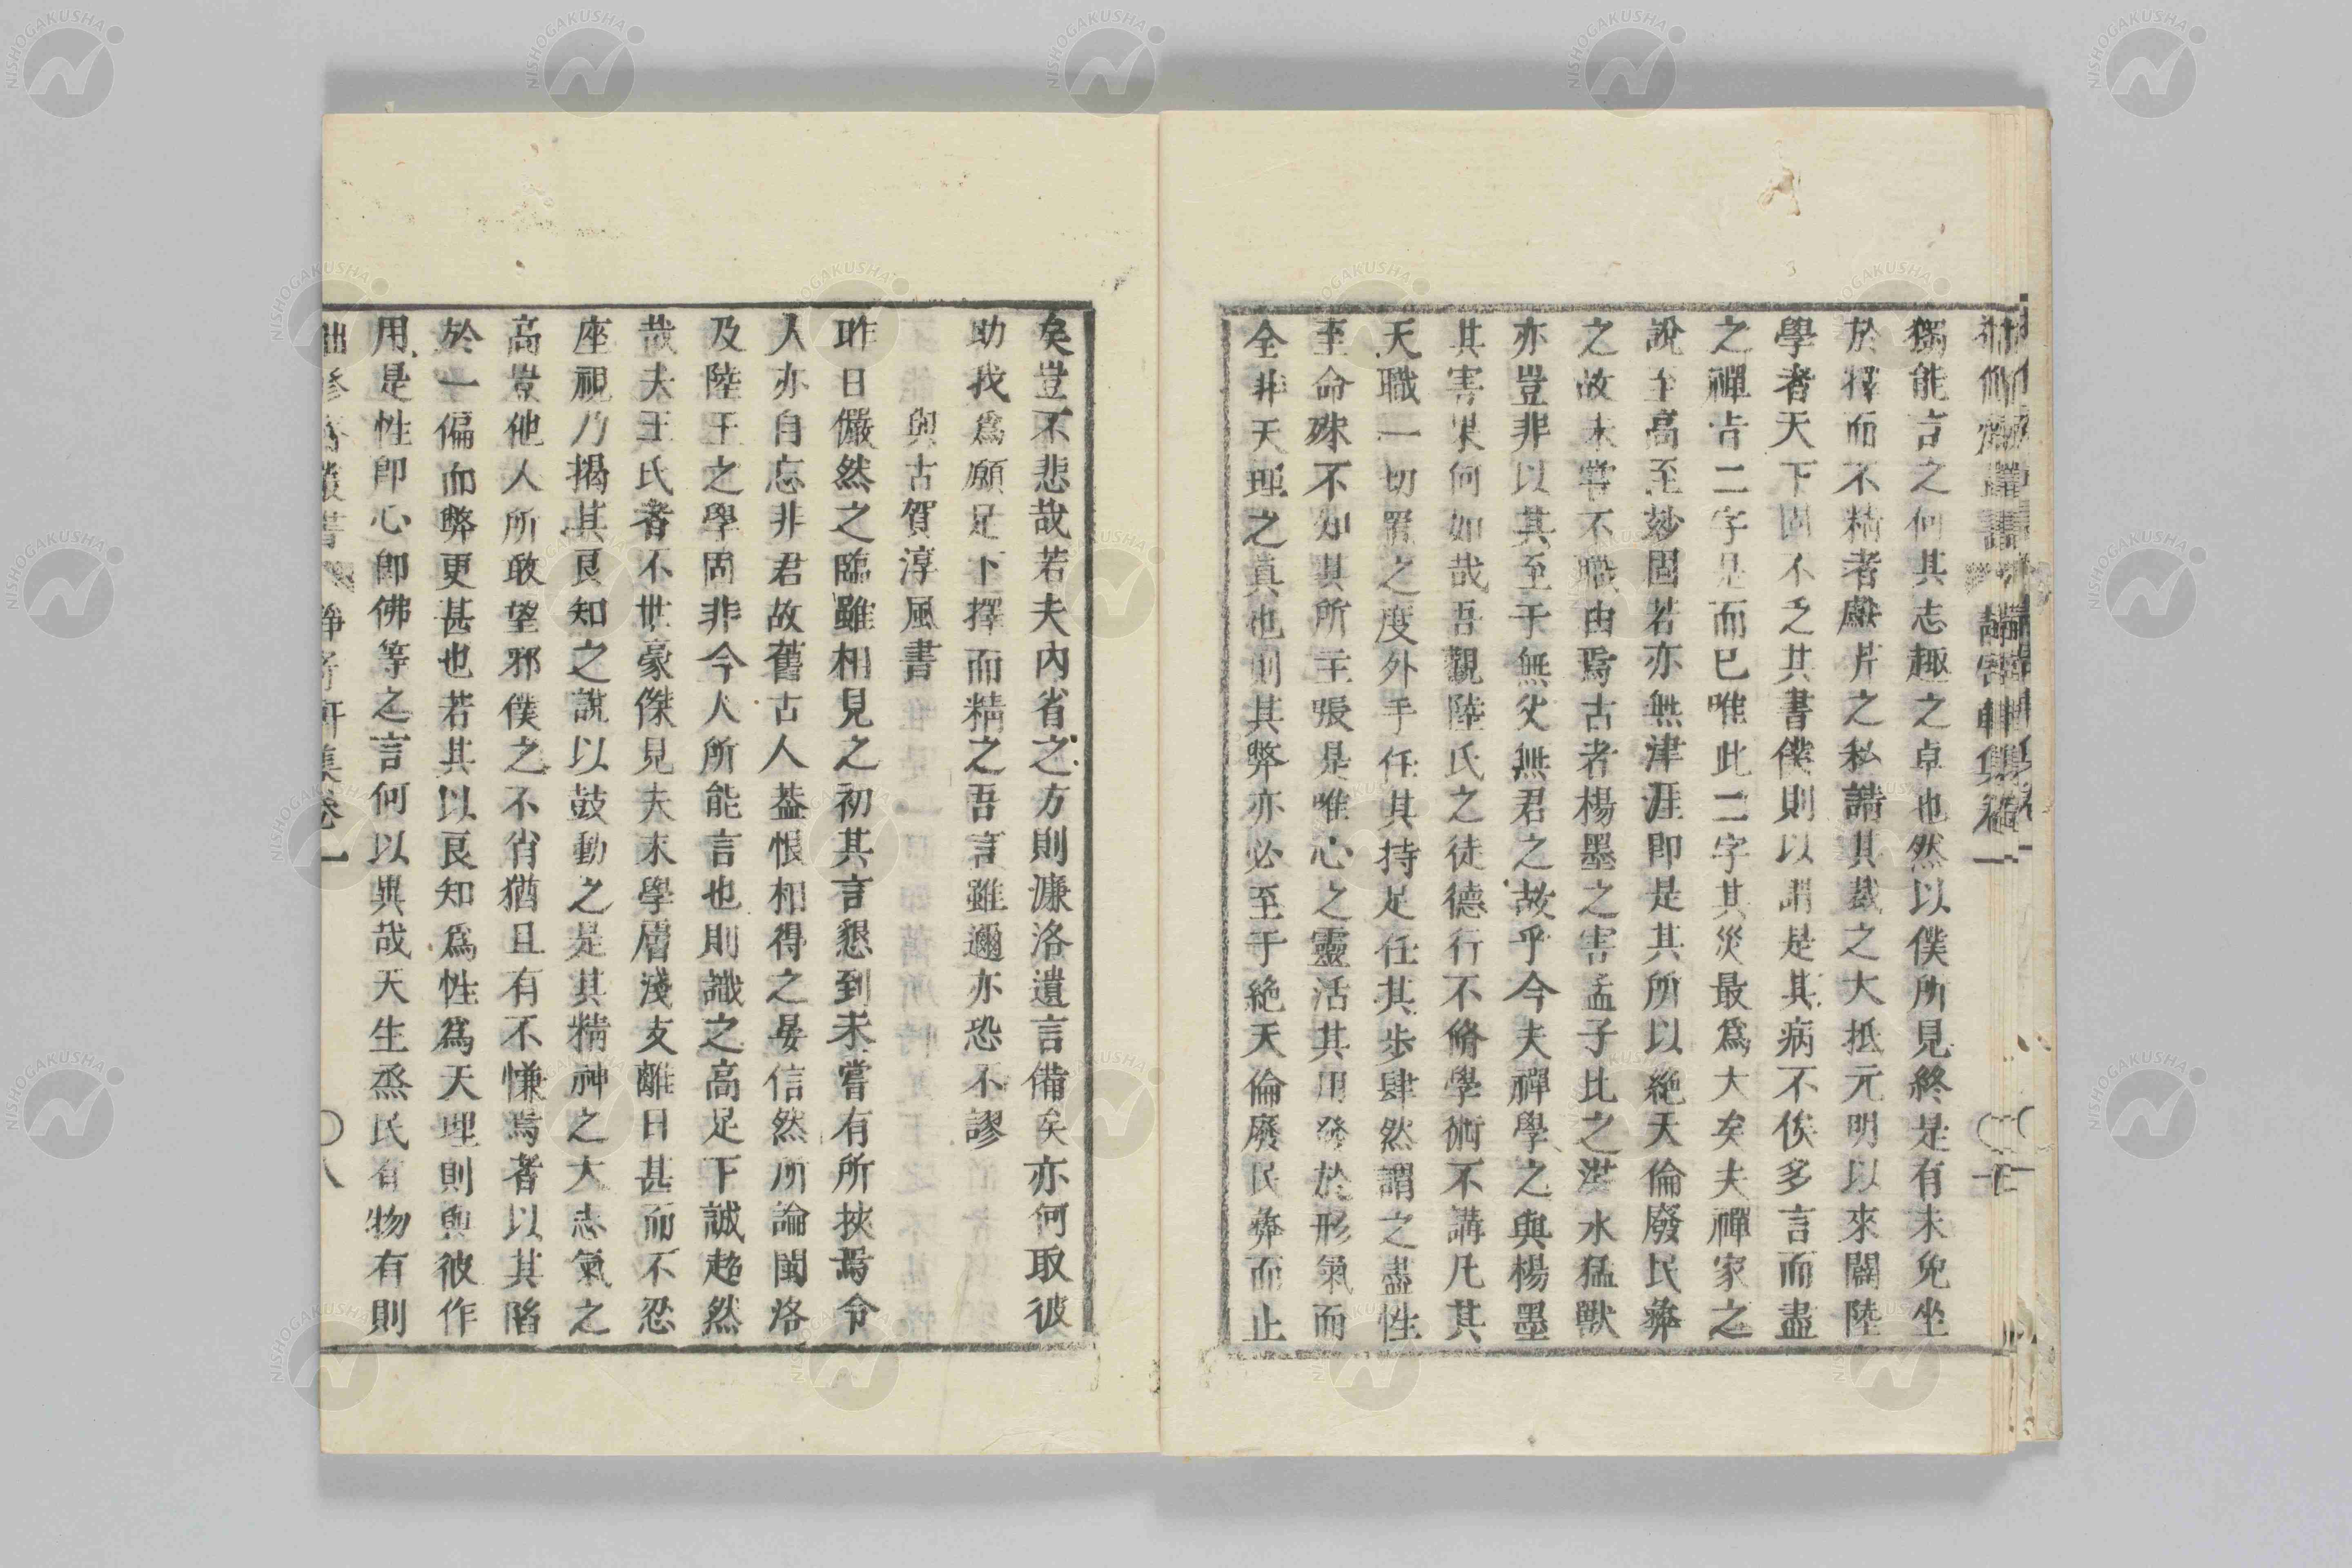 獨能言之何其志趣之卓也然以僕所見終是有未免坐
於擇而不精者獻芹之私請其裁之大抵元明以來闢陸
學者天下固不乏其書僕則以謂是其病不俟多言而盡
之禪告二字是而已唯此二字其災最爲大矣夫禪家之
說至高至妙固若亦無津涯卽是其所以絶天倫廢民彝
之故未嘗不職由焉古者楊墨之害孟子比之洪水猛獸
亦豈非以其至于無父無君之故乎今夫禪學之與楊墨
其害果何如哉吾觀陸氏之徒德行不脩學術不講凡其
天職一切置之度外手任其持足任其步肆然謂之盡性
至命殊不知其所主張是唯心之靈活其用發於形氣而
全非天理之眞也則其弊亦必至于絶天倫廢民彝而止
矣豈不悲哉若夫內省之方則濂洛遺言備矣亦何取彼
助我爲願足下擇而精之吾言雖邇亦恐不謬
與古賀淳風書
昨日儼然之臨雖相見之初其言懇到未嘗有所挾焉令
人亦自忘非君故舊古人葢恨相得之晏信然所論閩洛
及陸王之學固非今人所能言也則識之高足下誠超然
哉夫王氏者不世豪傑見夫末學層淺支離日甚而不忍
座視乃揭其良知之說以鼓動之是其精神之大志氣之
高豈他人所敢望邪僕之不肖猶且有不慊焉者以其陷
於一偏而弊更甚也若其以良知爲性爲天理則與彼作
用是性卽心卽佛等之言何以異哉天生烝民有物有則